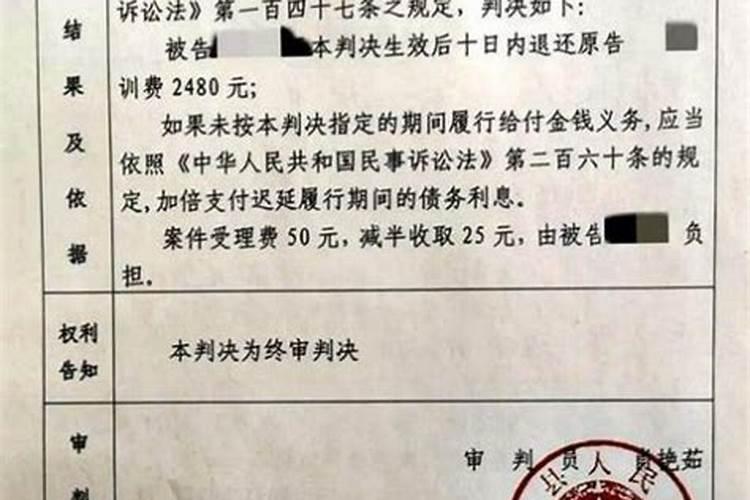 诉讼法》第一百四十七条之规定，判决如下：
被告 本判决生效后十日内退还原告
训费2480元；
如果未按本判决指定的期间履行给付金钱义务，应当
依照《中华人民共和国民事诉讼法》第二百六十条的规
定，加倍支付迟延履行期间的债务利息。
案件受理费50元，减半收取25元，由被告 负
担。
结果及依据
权利
告知
本判决为终审判决
审判
审 判 员 肖艳茹
县人民